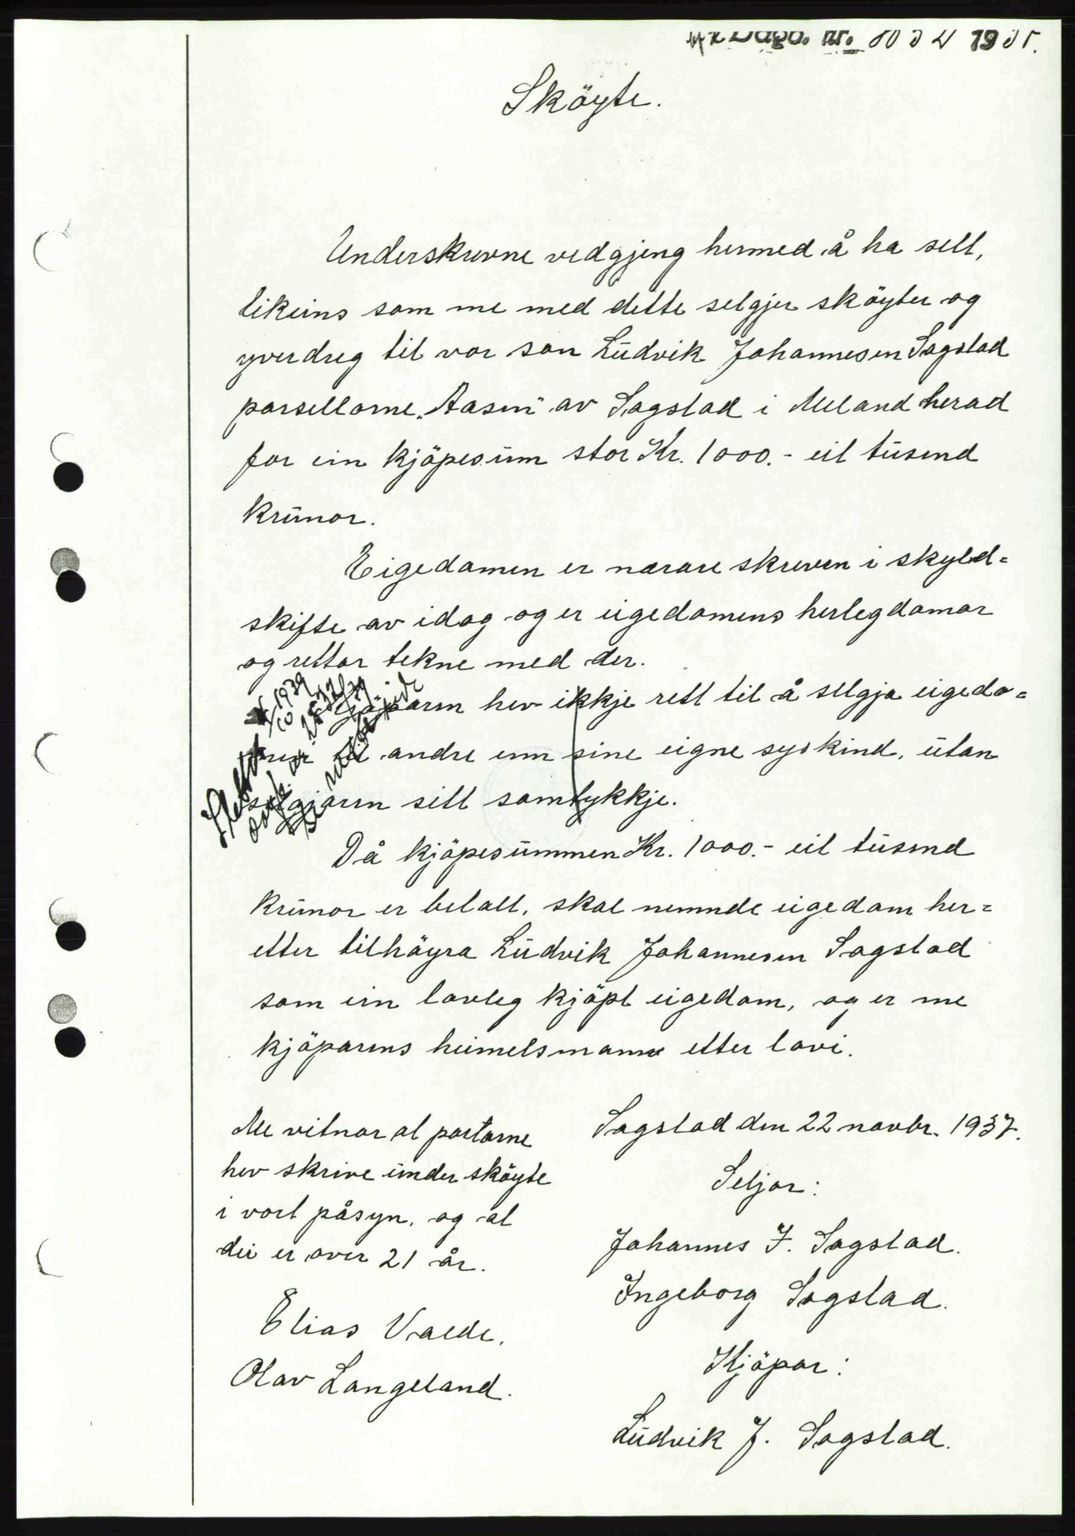 Dagb. nr. 19
Sköyte.
Underskrivne vedgjeng hermed å ha selt,
likeins som me med dette selgjer sköyter og
yverdreg til vor son Ludvik Johannesen Sagstad
parsellarne „Aasen" av Sagstad i Meland herad
for ein kjöpesum stor Kr. 1000.- eit tusend
krunor.
Eigedomen er nærare skreven i skyld=
skifte av idag og er eigedomens herlegdomar
og rettar tekne med der.
Kjöparen hev ikkje rett til å selgja eigedo=
men til andre enn sine eigne syskind, utan
seljaren sitt samtykkje.
Då kjöpesummen Kr. 1000.- eit tusend
krunor er betalt, skal nemnde eigedom her=
etter tilhöyra Ludvik Johannesen Sagstad
som ein lovleg kjöpt eigedom, og er me
kjöparens heimelsmann etter lovi.
Me vitnar at partarne
hev skrive under sköyte
i vort påsyn, og at
dei er over 21 år.
Elias Valde.
Olav Langeland.
Sagstad den 22 novbr. 1937.
Seljar:
Johannes J. Sagstad.
Ingeborg Sagstad.
Kjöpar:
Ludvik J. Sagstad.